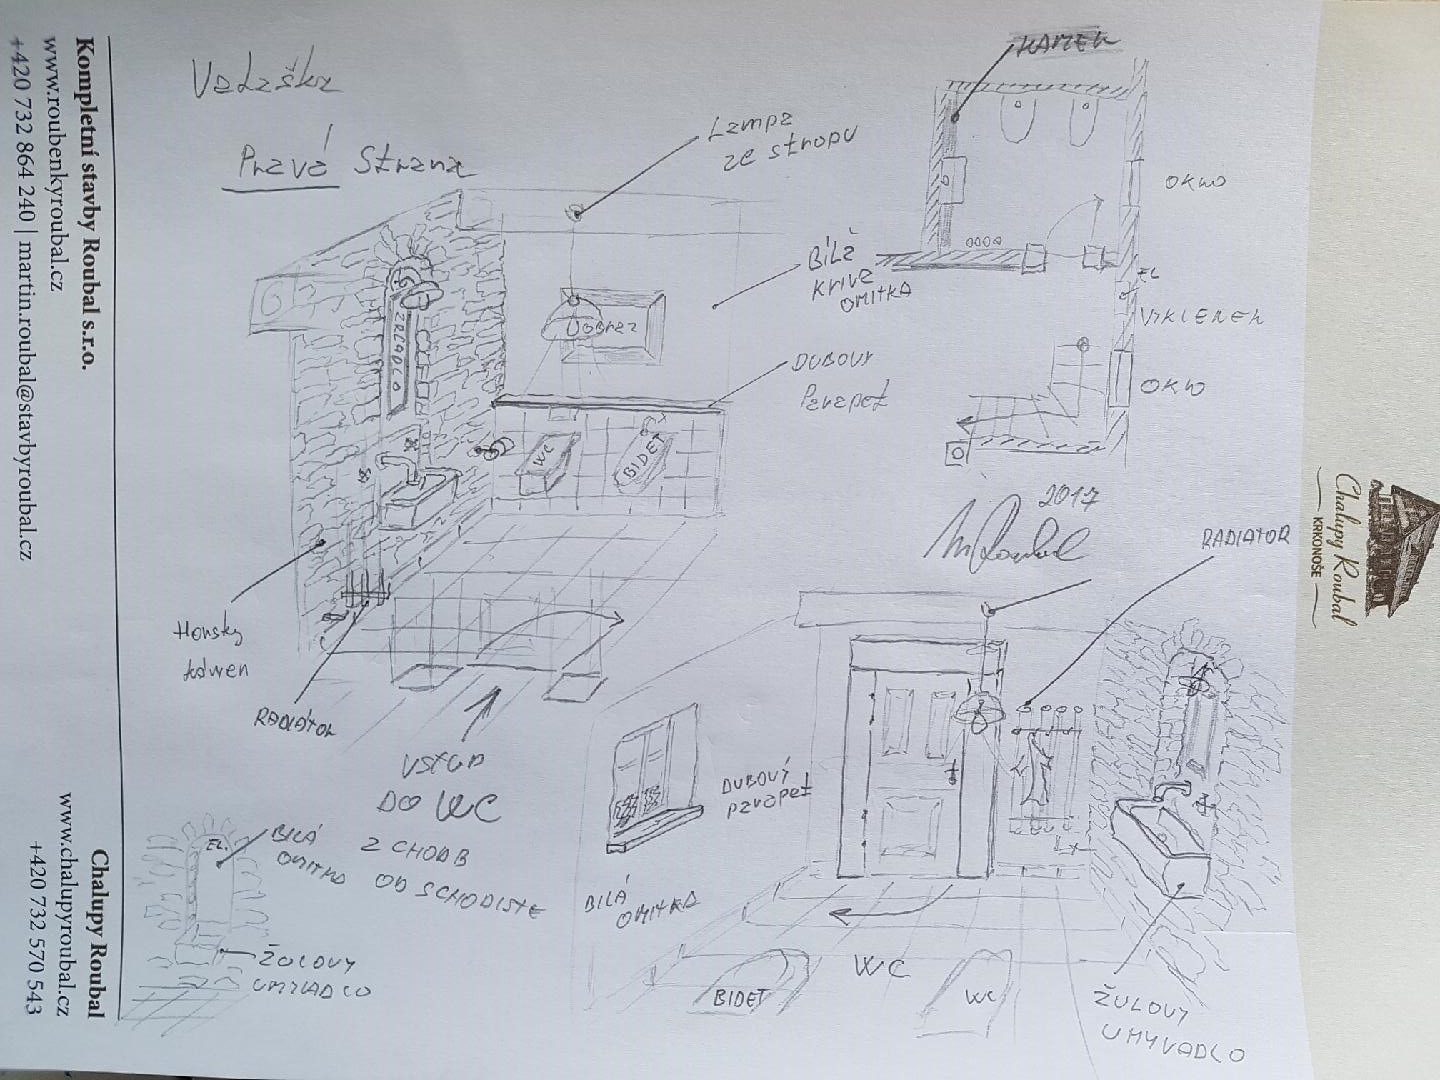 Kompletní stavby Roubal s.r.o.
www.roubenkyroubal.cz
+420 732 864 240 | martin.roubal@stavbyroubal.cz
Chalupy Roubal
www.chalupyroubal.cz
+420 732 570 543
Chalupy Roubal
KRKONOŠE
Pravá Strana
Lampa
ze stropu
KAMEN
OKNO
EL
VÝKLENEK
OKNO
BÍLÁ
KRIVÁ
OMITKA
DUBOVÝ
Parapet
ZRCADLO
Uobraz
WC
BIDET
Horský
kámen
RADIÁTOR
VSTUP
DO WC
Z CHODB
OD SCHODISTE
2017
RADIATOR
DUBOVÝ
parapet
BILÁ
OMITKA
EL.
BILÁ
OMITKA
ŽULOVY
UMYVADLO
BIDET
WC
WC
ŽULOVY
UMYVADLO